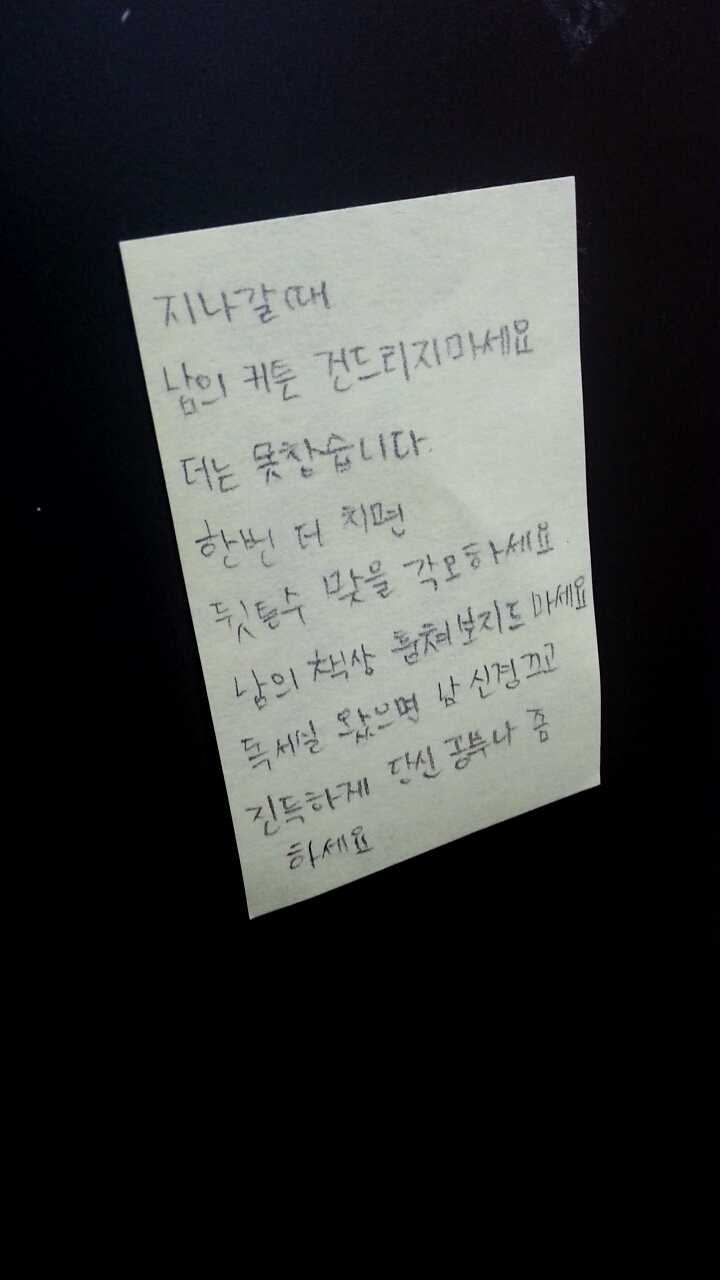 지나갈때
남의 커튼 건드리지마세요
더는 못참습니다.
한번 더 치면
뒷통수 맞을 각오하세요.
남의 책상 훔쳐보지도 마세요
독서실 왔으면 남 신경끄고
진득하게 당신 공부나 좀
하세요